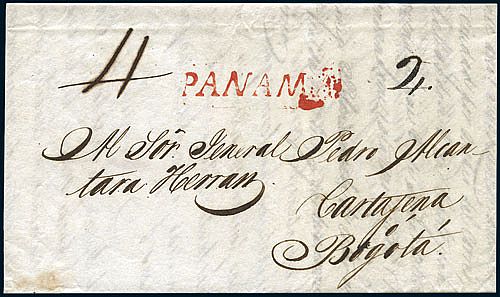 4 PANAMÁ 2.
Al Sōr. Jeneral Pedro Alcan-
tara Herran
Cartajena
ó
Bogotá.